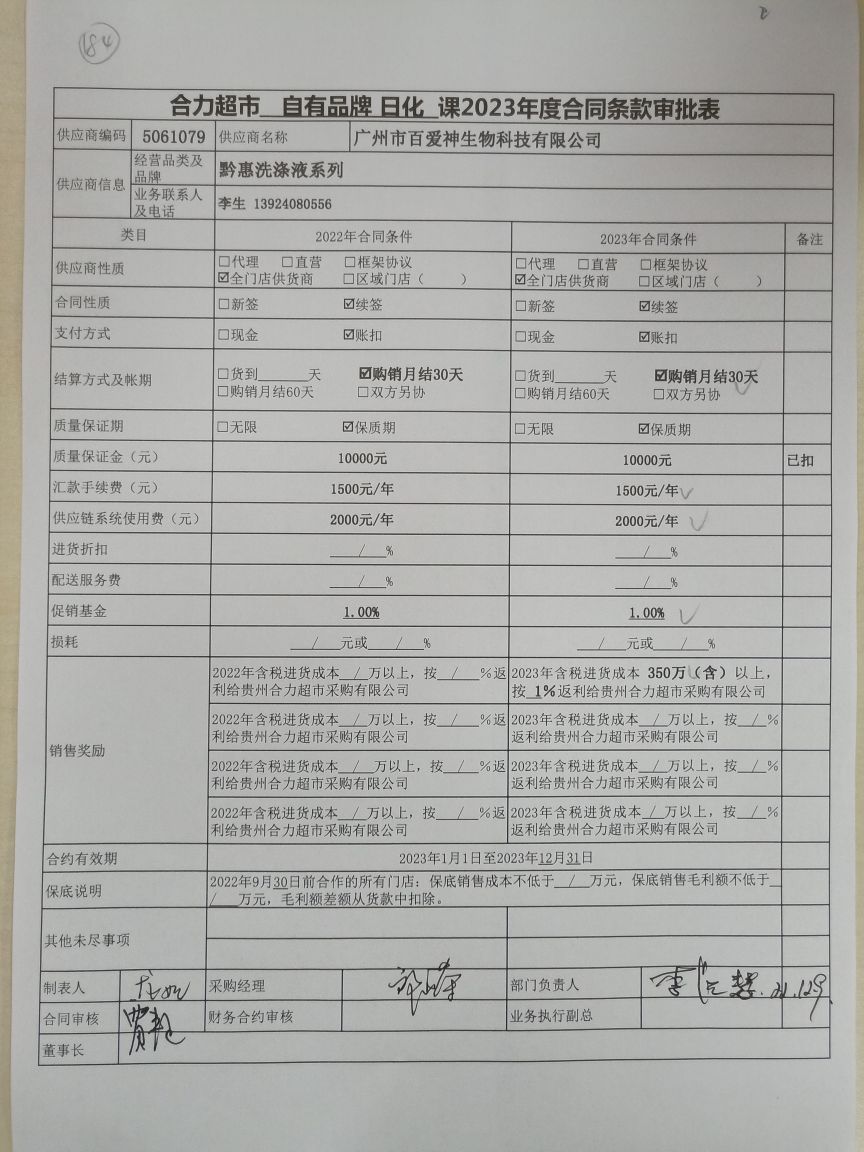 184
合力超市 自有品牌 日化 课2023年度合同条款审批表
供应商编码 5061079 供应商名称 广州市百爱神生物科技有限公司
供应商信息 经营品类及品牌 黔惠洗涤液系列
业务联系人及电话 李生 13924080556
类目 2022年合同条件 2023年合同条件 备注
供应商性质 □代理 □直营 □框架协议 □代理 □直营 □框架协议
☑全门店供货商 □区域门店（ ） ☑全门店供货商 □区域门店（ ）
合同性质 □新签 ☑续签 □新签 ☑续签
支付方式 □现金 ☑账扣 □现金 ☑账扣
结算方式及帐期 □货到______天 ☑购销月结30天 □货到______天 ☑购销月结30天
□购销月结60天 □双方另协 □购销月结60天 □双方另协
质量保证期 □无限 ☑保质期 □无限 ☑保质期
质量保证金（元） 10000元 10000元 已扣
汇款手续费（元） 1500元/年 1500元/年
供应链系统使用费（元） 2000元/年 2000元/年
进货折扣 __/__% __/__%
配送服务费 __/__% __/__%
促销基金 1.00% 1.00%
损耗 __/__元或__/__% __/__元或__/__%
销售奖励
2022年含税进货成本_/_万以上，按_/_%返 2023年含税进货成本 350万（含）以上，
利给贵州合力超市采购有限公司 按 1%返利给贵州合力超市采购有限公司
2022年含税进货成本_/_万以上，按_/_%返 2023年含税进货成本_/_万以上，按_/_%
利给贵州合力超市采购有限公司 返利给贵州合力超市采购有限公司
2022年含税进货成本_/_万以上，按_/_%返 2023年含税进货成本_/_万以上，按_/_%
利给贵州合力超市采购有限公司 返利给贵州合力超市采购有限公司
2022年含税进货成本_/_万以上，按_/_%返 2023年含税进货成本_/_万以上，按_/_%
利给贵州合力超市采购有限公司 返利给贵州合力超市采购有限公司
合约有效期 2023年1月1日至2023年12月31日
保底说明 2022年9月30日前合作的所有门店：保底销售成本不低于__/__万元，保底销售毛利额不低于_
_/__万元，毛利额差额从货款中扣除。
其他未尽事项
制表人 采购经理 部门负责人
合同审核 财务合约审核 业务执行副总
董事长